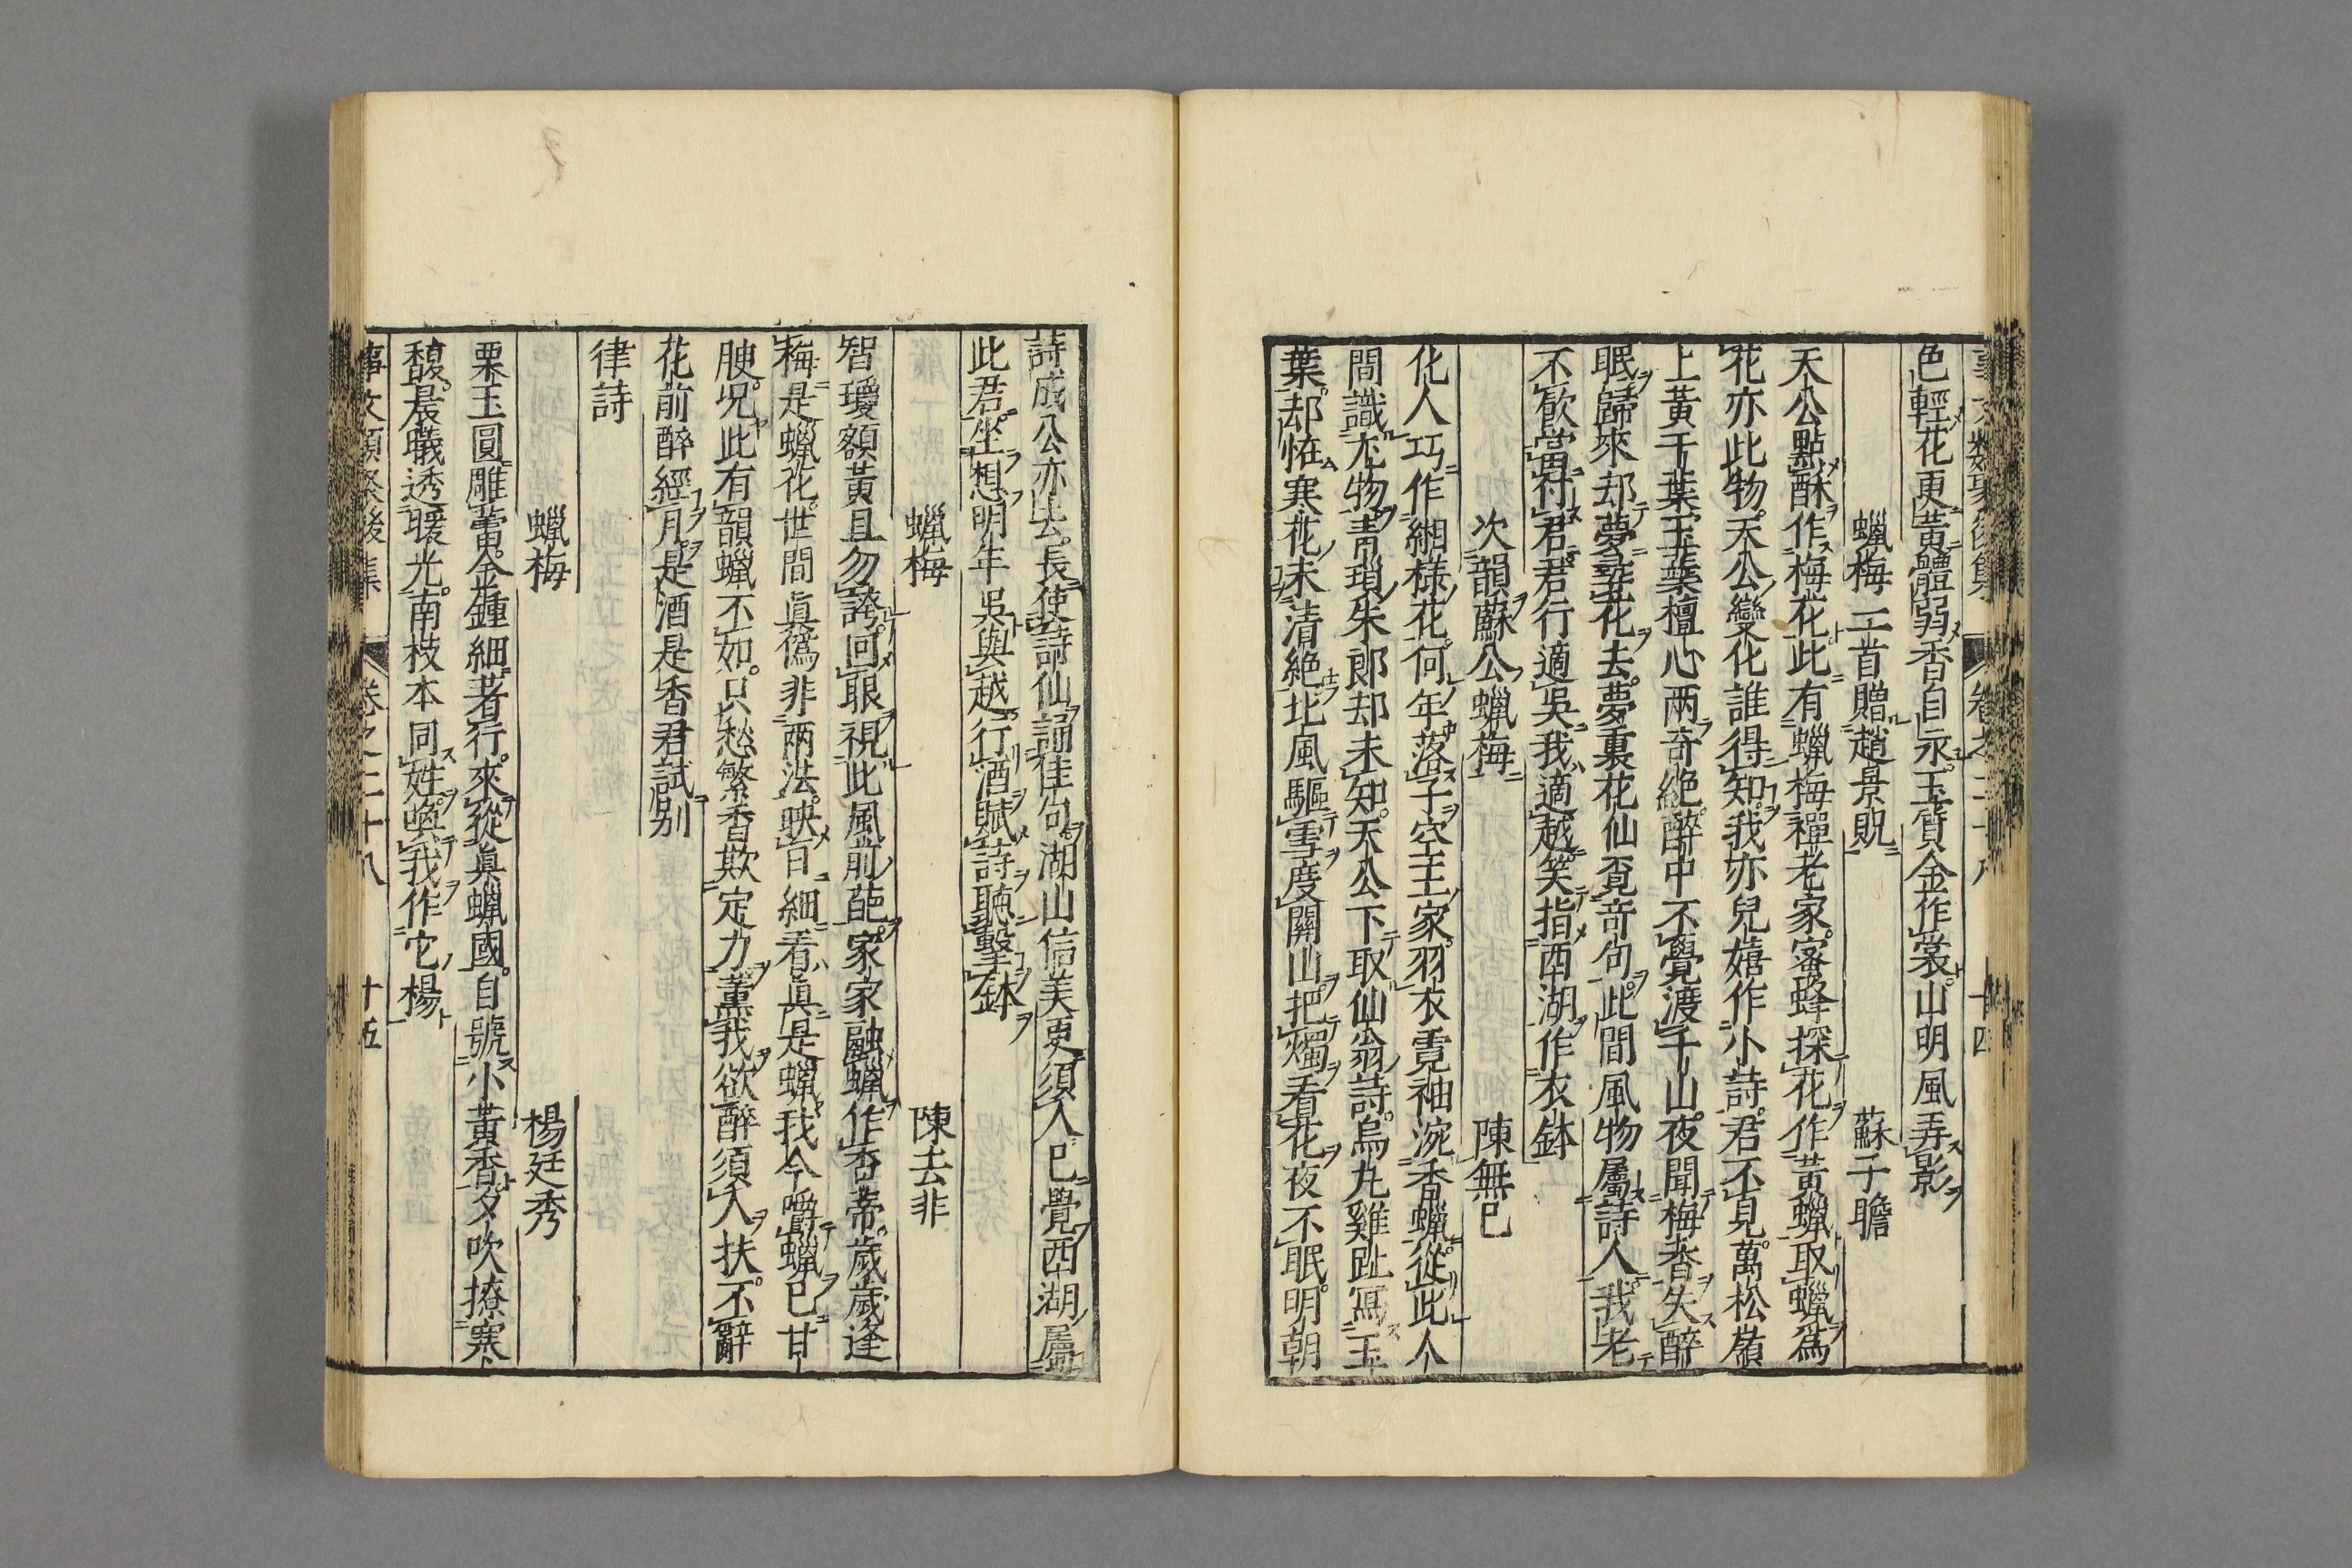 事文類聚後集 卷之二十八 十四
色輕花更黃體弱香自永玉質金作裳山明風弄影
蠟梅一首贈趙景貺 蘇子瞻
天公點酥作梅花此有蠟梅禪老家蜜蜂採花作黃蠟取蠟爲
花亦此物天公變化誰得知我亦兒嬉作小詩君不見萬松嶺
上黃千葉玉蘂檀心兩奇絕醉中不覺渡千山夜聞梅香失醉
眠歸來却夢尋花去夢裏花仙覓奇句此間風物屬詩人我老
不飮當付君君行適吳我適越笑指西湖作衣鉢
次韻蘇公蠟梅 陳無已
化人巧作緗樣花何年落子空王家羽衣霓袖涴香蠟從此人
間識尤物靑瑣朱郞却未知天公下取仙翁詩烏丸雞趾寫玉
葉却恠寒花未清絕北風驅雪度關山把燭看花夜不眠明朝
詩成公亦去長使詩仙誦佳句湖山信美更須人已覺西湖屬
此君坐想明年吳與越行酒賦詩聽擊鉢
蠟梅 陳去非
智瓊額黃且勿誇回眼視此風前葩家家融蠟作杏蔕歲歲逢
梅是蠟花世間眞僞非兩法映日細看眞是蠟我今嚼蠟已甘
腴况此有韻蠟不如只愁繁香欺定力薰我欲醉須人扶不辭
花前醉經月是酒是香君試別
律詩
蠟梅 楊廷秀
栗玉圓雕蕾金鍾細著行來從眞蠟國自號小黃香夕吹撩寒
馥晨曦透暖光南枝本同姓喚我作它楊
事文類聚後集 卷之二十八 十五